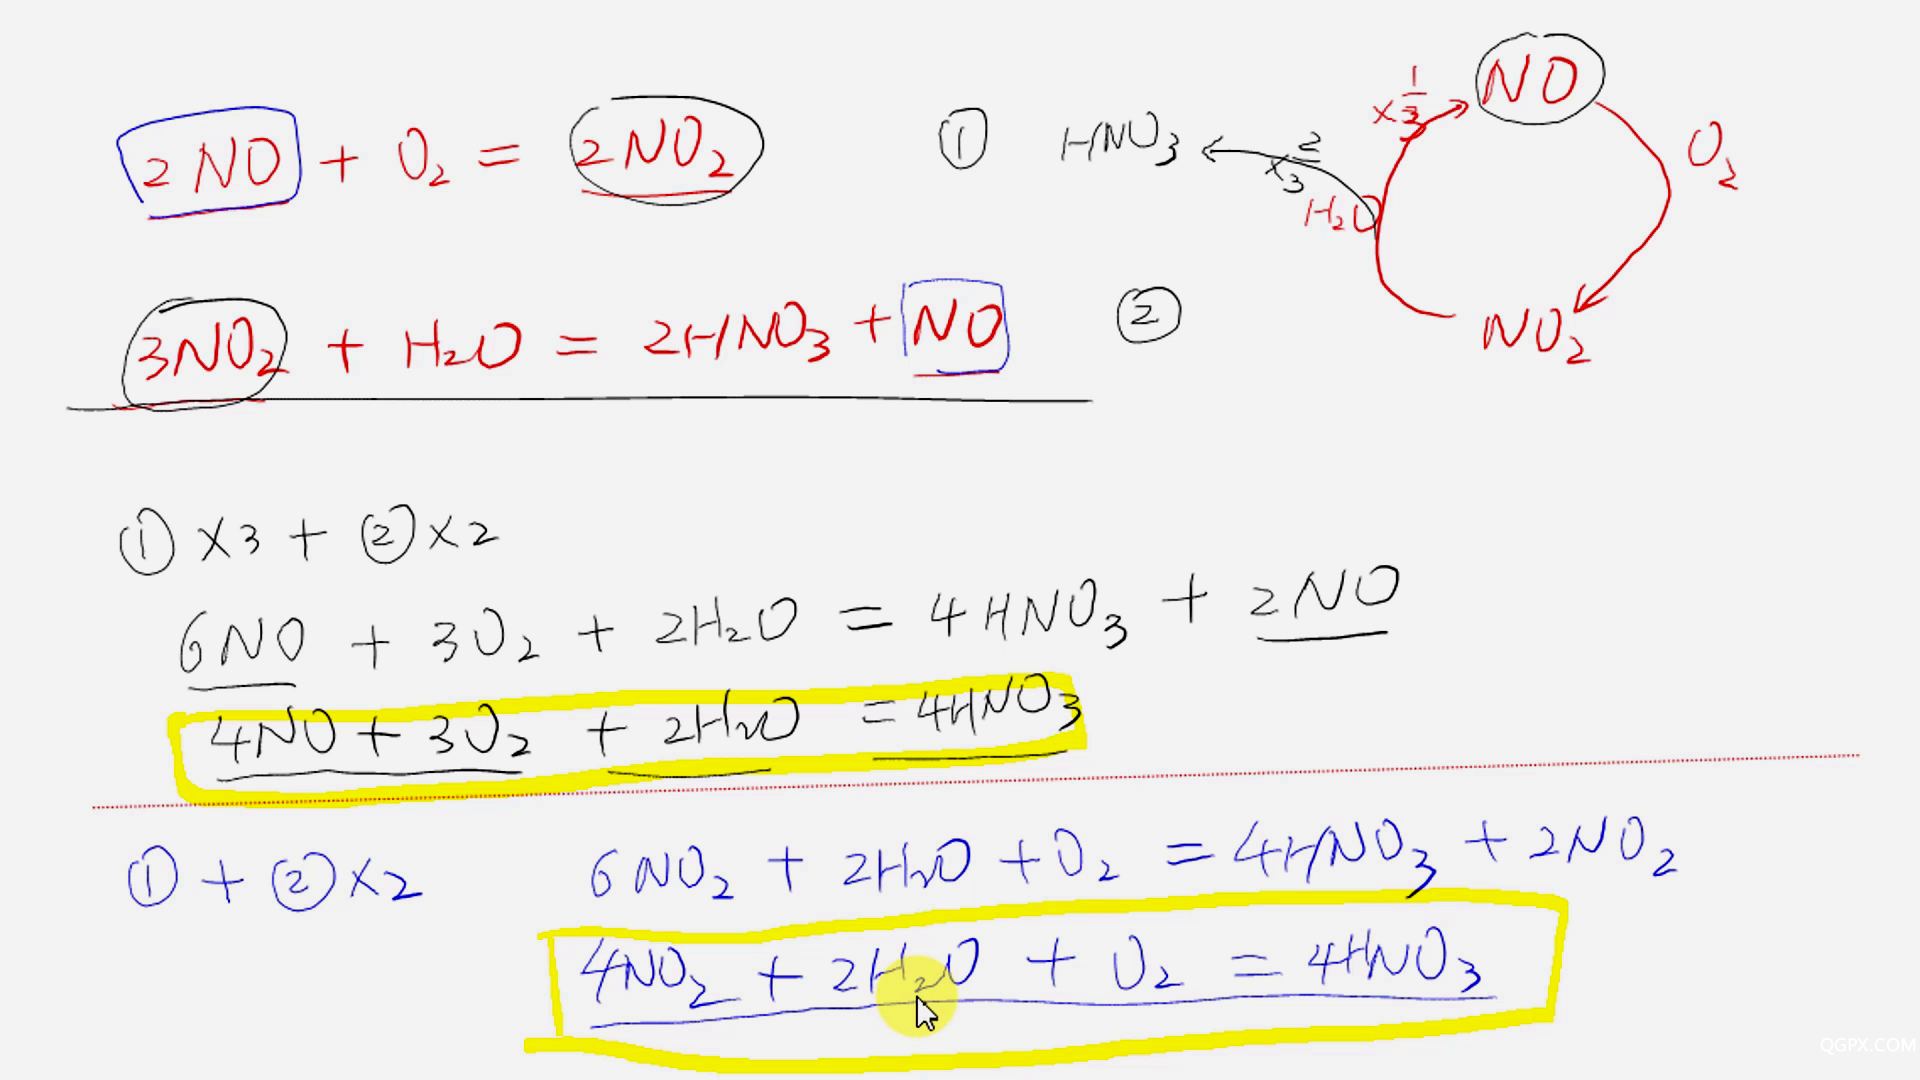 2NO + O₂ = 2NO₂ ①
3NO₂ + H₂O = 2HNO₃ + NO ②
NO
O₂
NO₂
H₂O
×1/3
×2/3
HNO₃
①×3 + ②×2
6NO + 3O₂ + 2H₂O = 4HNO₃ + 2NO
4NO + 3O₂ + 2H₂O = 4HNO₃
①+②×2 6NO₂ + 2H₂O + O₂ = 4HNO₃ + 2NO₂
4NO₂ + 2H₂O + O₂ = 4HNO₃
QGPX.COM